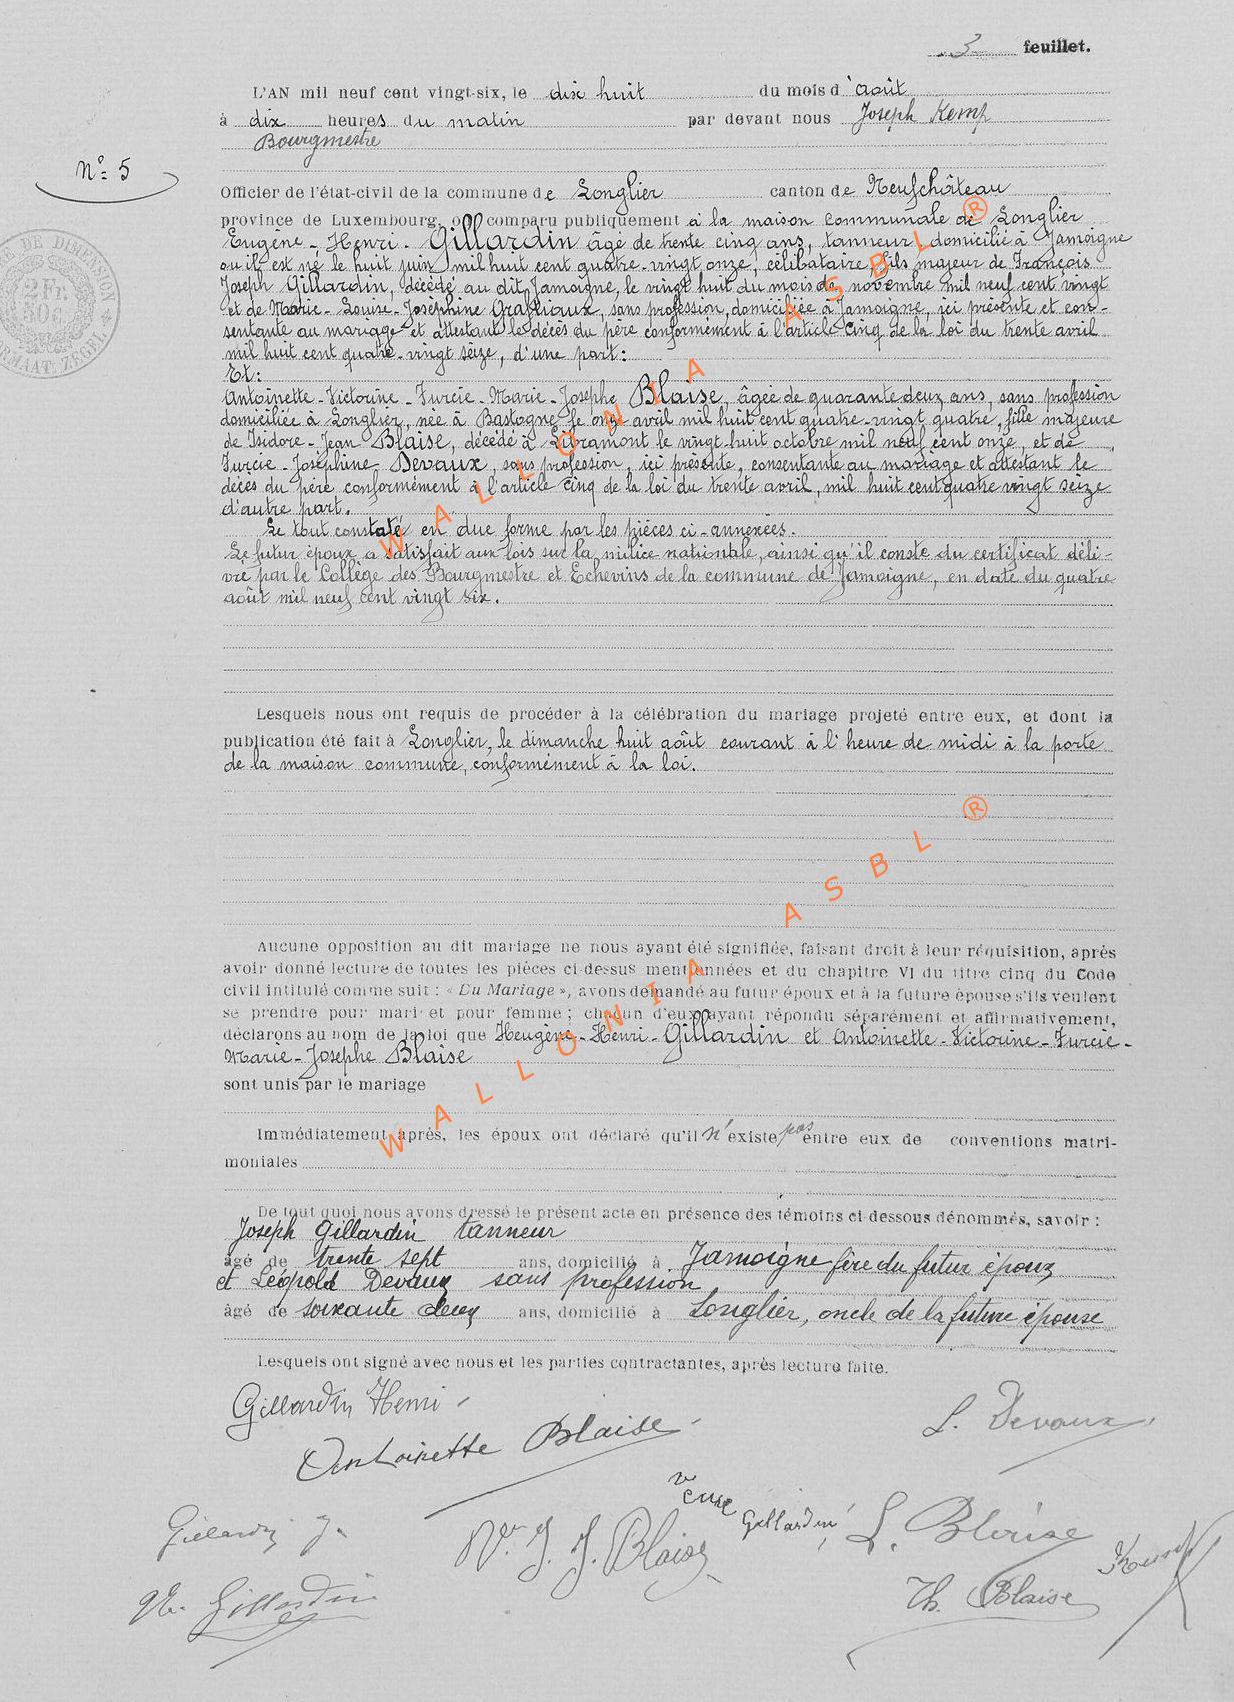 3 feuillet.
L'AN mil neuf cent vingt-six, le dix huit du mois d'août
à dix heures du matin par devant nous Joseph Kemp
Bourgmestre
Nº 5
Officier de l'état-civil de la commune de Longlier canton de Neufchâteau
province de Luxembourg, ont comparu publiquement à la maison communale de Longlier
Eugène-Henri-Gillardin âgé de trente cinq ans, tanneur domicilié à Jamoigne
ou il est né le huit juin mil huit cent quatre-vingt onze, célibataire, fils majeur de François
Joseph Gillardin, décédé au dit Jamoigne, le vingt huit du mois de novembre mil neuf cent vingt
et de Marie-Louise-Joséphine sans profession, domiciliée à Jamoigne, ici présente et con-
sentante au mariage et attestant le décès du père conformément à l'article cinq de la loi du trente avril
mil huit cent quatre-vingt seize, d'une part:
Et:
Antoinette-Victorine-Turcie-Marie-Josephe Blaise, âgée de quarante deux ans, sans profession
domiciliée à Longlier, née à Bastogne le onze avril mil huit cent quatre-vingt quatre, fille majeure
de Isidore-Jean Blaise, décédé à Libramont le vingt huit octobre mil neuf cent onze, et de
Turcie-Joséphine Devaux, sans profession, ici présente, consentante au mariage et attestant le
décès du père conformément à l'article cinq de la loi du trente avril, mil huit cent quatre vingt seize
d'autre part.
Le tout constaté en due forme par les pièces ci-annexées.
Le futur époux a satisfait aux lois sur la milice nationale, ainsi qu'il conste du certificat déli-
vré par le Collège des Bourgmestre et Echevins de la commune de Jamoigne, en date du quatre
août mil neuf cent vingt six.
Lesquels nous ont requis de procéder à la célébration du mariage projeté entre eux, et dont la
publication été fait à Longlier, le dimanche huit août courant à l'heure de midi à la porte
de la maison commune, conformément à la loi.
Aucune opposition au dit mariage ne nous ayant été signifiée, faisant droit à leur réquisition, après
avoir donné lecture de toutes les pièces ci-dessus mentionnées et du chapitre VI du titre cinq du Code
civil intitulé comme suit : « Du Mariage », avons demandé au futur époux et à la future épouse s'ils veulent
se prendre pour mari et pour femme ; chacun d'eux ayant répondu séparément et affirmativement,
déclarons au nom de la loi que Heugène-Henri-Gillardin et Antoinette-Victorine-Turcie-
Marie-Josephe Blaise
sont unis par le mariage
Immédiatement après, les époux ont déclaré qu'il n'existe pas entre eux de conventions matri-
moniales
De tout quoi nous avons dressé le présent acte en présence des témoins ci-dessous dénommés, savoir :
Joseph Gillardin tanneur
âgé de trente sept ans, domicilié à Jamoigne frère du futur époux
et Léopold Devaux sans profession
âgé de soixante deux ans, domicilié à Longlier, oncle de la future épouse
Lesquels ont signé avec nous et les parties contractantes, après lecture faite.
Gillardin Henri
Antoinette Blaise
L. Devaux
Gillardin J.
Vve J. J. Blaise
veuve Gillardin
L. Blaise
Kemp
Gillardin
Th. Blaise
WALLONIA ASBL ®
WALLONIA ASBL ®
2 Fr.
50 c.